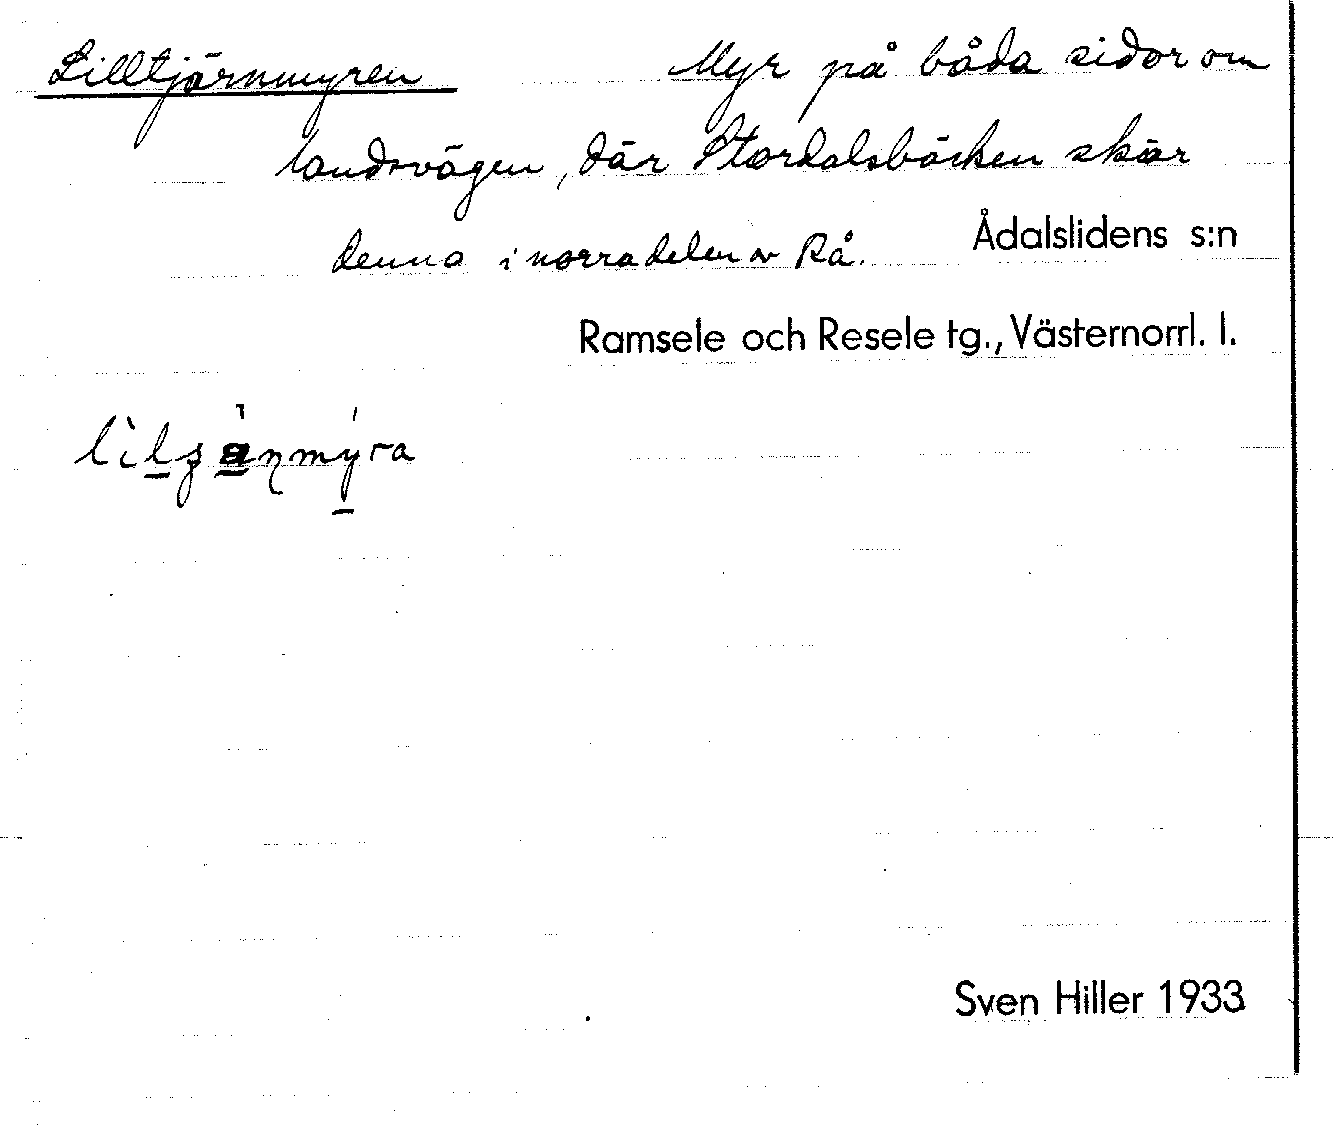 Lilltjärnmyren Myr på båda sidor om
landsvägen, där Stordalsbäcken skär
denna i norra delen av Rå. Ådalslidens s:n
Ramsele och Resele tg., Västernorrl. l.
Sven Hiller 1933